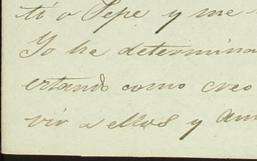 ti o Pepe y me-
Yo he determina
estando como creo
vir a ellos y am